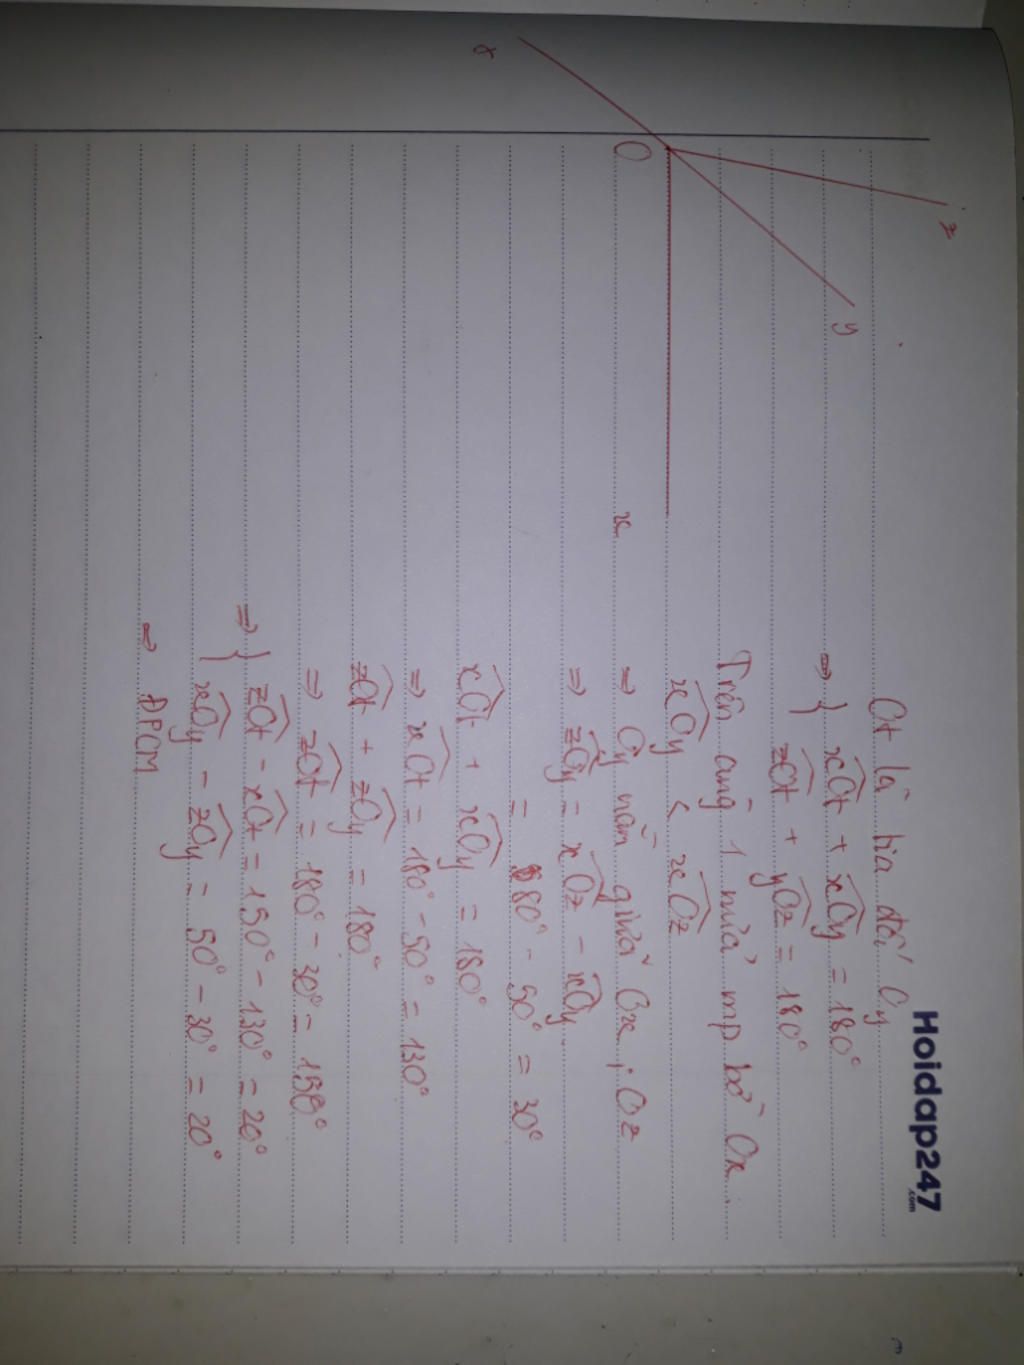 Hoidap247
.com
Ot là tia đối Oy
⇒ } xOt + xOy = 180°
zOt + yOz = 180°
Trên cùng 1 nửa mp bờ Ox
xOy < xOz
⇒ Oy nằm giữa Ox ; Oz
⇒ zOy = xOz - xOy
= 80° - 50° = 30°
xOt + xOy = 180°
⇒ xOt = 180° - 50° = 130°
zOt + zOy = 180°
⇒ zOt = 180° - 30° = 150°
⇒ } zOt - xOt = 150° - 130° = 20°
xOy - zOy = 50° - 30° = 20°
⇒ ĐPCM
z
y
O
x
t